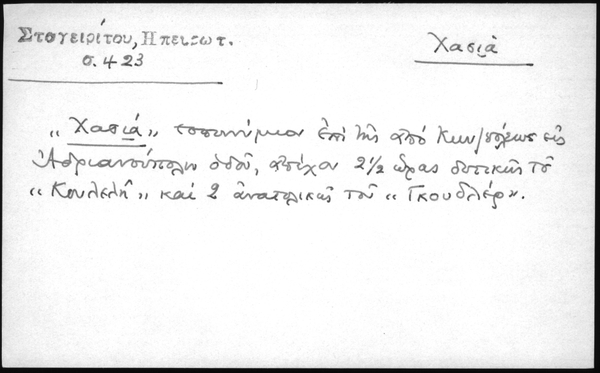 Σταγειρίτου, Ηπειρωτ.
σ. 423
Χασιά
"Χασιά" τοπωνύμιον ἐπὶ τῆς ἀπό Κων/πόλεως εἰς
Ἀδριανούπολιν ὁδοῦ, ἀπέχον 2 1/2 ὥρας δυτικῶς τοῦ
"Κουλελῆ" καί 2 ἀνατολικῶς τοῦ "Γκουδλέρ".